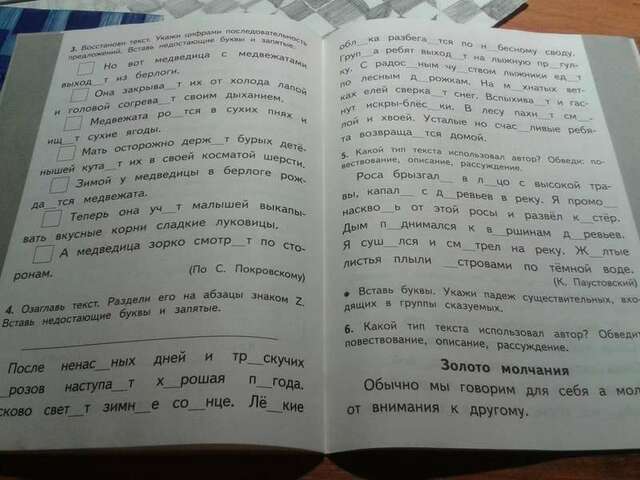 3. Восстанови текст. Укажи цифрами последовательность
предложений. Вставь недостающие буквы и запятые.
Но вот медведица с медвежатами
выход__т из берлоги.
Она закрыва__т их от холода лапой
и головой согрева__т своим дыханием.
Медвежата ро__тся в сухих пнях и
ищ__т сухие ягоды.
Мать осторожно держ__т бурых детё-
нышей кута__т их в своей косматой шерсти.
Зимой у медведицы в берлоге рож-
да__тся медвежата.
Теперь она уч__т малышей выкапы-
вать вкусные корни сладкие луковицы.
А медведица зорко смотр__т по сто-
ронам.
(По С. Покровскому)
4. Озаглавь текст. Раздели его на абзацы знаком Z.
Вставь недостающие буквы и запятые.
После ненас__ных дней и тр__скучих
__розов наступа__т х__рошая п__года.
сково свет__т зимн__е со__нце. Лё__кие
обл__ка разбега__тся по н__бесному своду.
Груп__а ребят выход__т на лыжную пр__гул-
ку. С радос__ным чу__ством лыжники ед__т
по лесным д__рожкам. На м__хнатых вет-
ках елей сверка__т снег. Вспыхива__т и гас-
нут искры-блёс__ки. В лесу пахн__т см__-
лой и хвоей. Усталые но счас__ливые ребя-
та возвраща__тся домой.
5. Какой тип текста использовал автор? Обведи: по-
вествование, описание, рассуждение.
Роса брызгал__ в л__цо с высокой тра-
вы, капал__ с д__ревьев в реку. Я промо__
насквo__ь от этой росы и развёл к__стёр.
Дым п__днимался к в__ршинам д__ревьев.
Я суш__лся и см__трел на реку. Ж__лтые
листья плыли __стровами по тёмной воде.
(К. Паустовский)
• Вставь буквы. Укажи падеж существительных, вхо-
дящих в группы сказуемых.
6. Какой тип текста использовал автор? Обведи
повествование, описание, рассуждение.
Золото молчания
Обычно мы говорим для себя а мол
от внимания к другому.